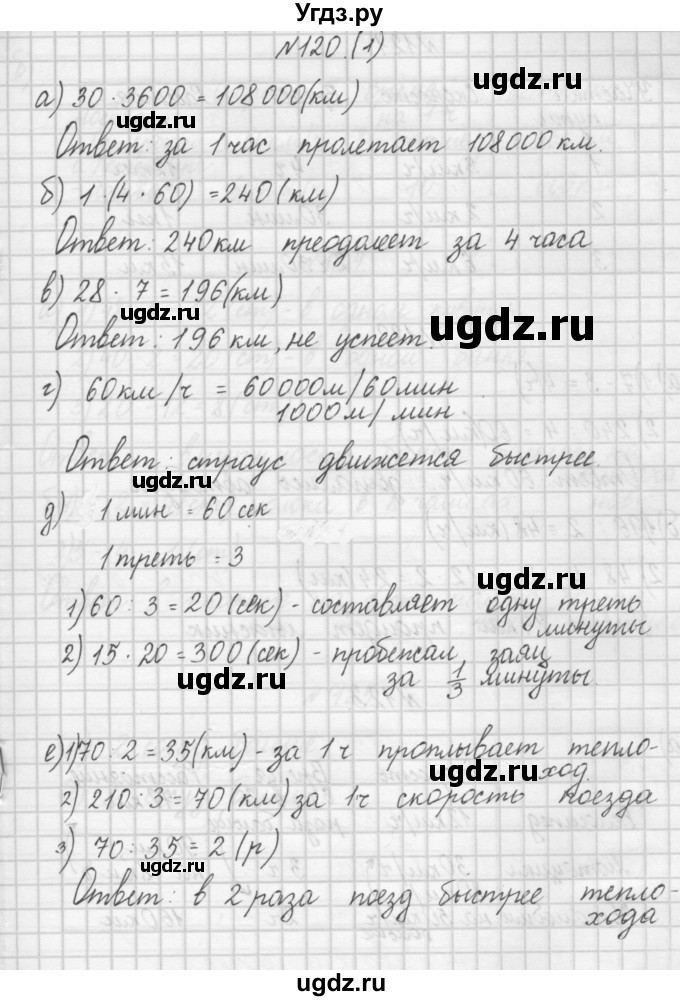 УгДЗ.ru
№120.(1)
а) 30 · 3600 = 108 000 (км)
ugdz.ru
Ответ: за 1 час пролетает 108000 км.
б) 1 · (4 · 60) = 240 (км)
ugdz.ru
Ответ: 240 км преодолеет за 4 часа
в) 28 · 7 = 196 (км)
Ответ: 196 км, не успеет.
ugdz.ru
ugdz.ru
г) 60 км/ч = 60 000 м/60 мин
1000 м/мин
Ответ: страус движется быстрее.
ugdz.ru
д) 1 мин = 60 сек
1 треть = 3
ugdz.ru
1) 60 : 3 = 20 (сек) - составляет одну треть
минуты
2) 15 · 20 = 300 (сек) - пробежал заяц
за 1/3 минуты.
ugdz.ru
е) 1) 70 : 2 = 35 (км) - за 1 ч проплывает тепло-
ход.
ugdz.ru
ugdz.ru
2) 210 : 3 = 70 (км) за 1 ч скорость поезда
3) 70 : 35 = 2 (р)
ugdz.ru
Ответ: в 2 раза поезд быстрее тепло-
хода
ugdz.ru
ugdz.ru